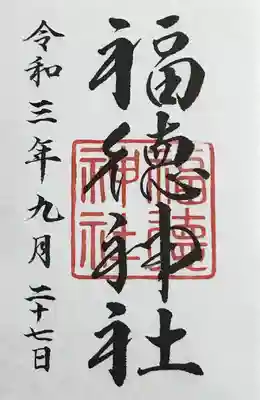 福徳神社
令和三年九月二十七日
福徳
神社